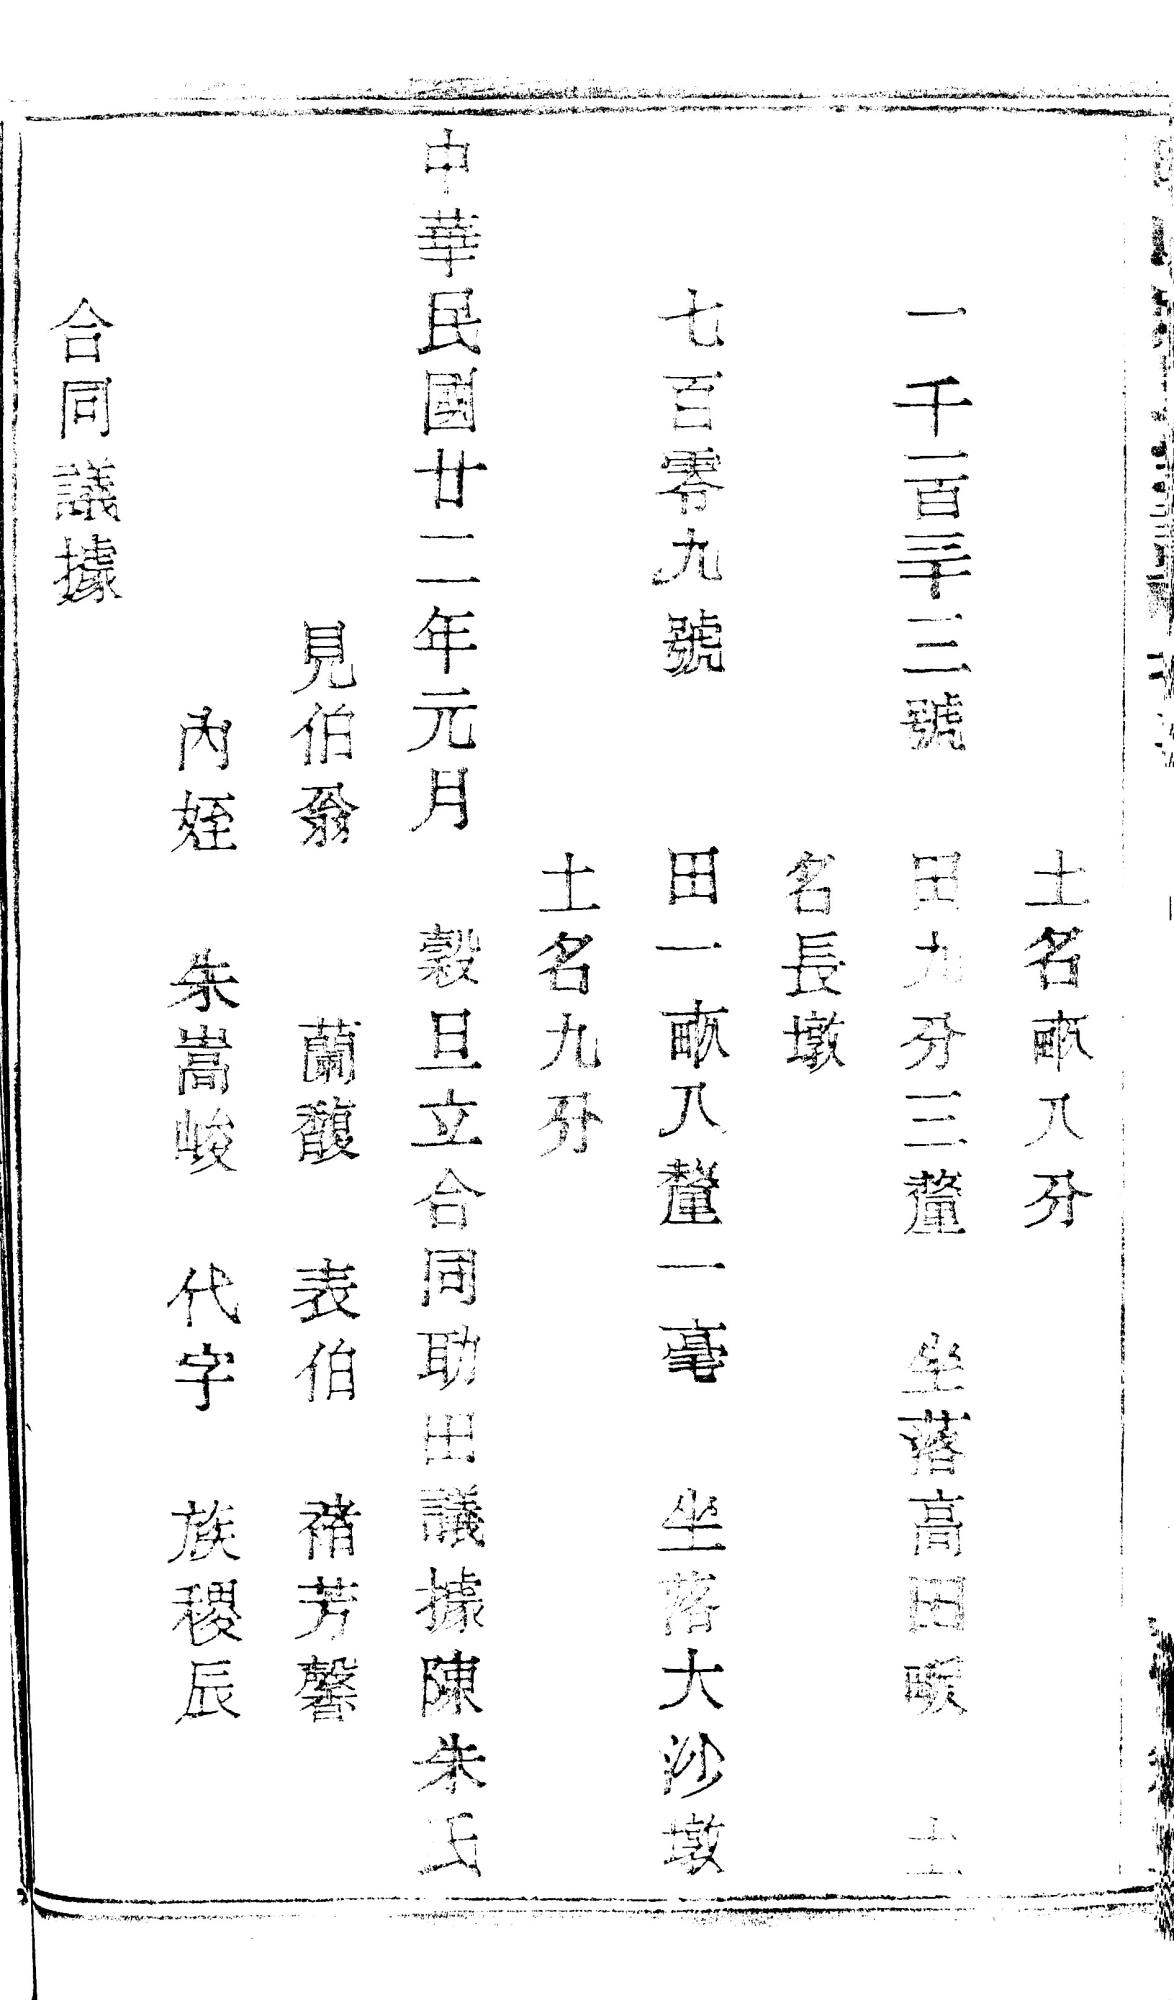 土名畝八分
一千一百三十三號　田九分三釐　坐落高田畈　土
名長墩
七百零九號　田一畝八釐一毫　坐落大沙墩
土名九分
中華民國廿二年元月　穀旦立合同助田議據陳朱氏
見伯翁　蘭馥　表伯　褚芳馨
內姪　朱嵩峻　代字　族稷辰
合同議據